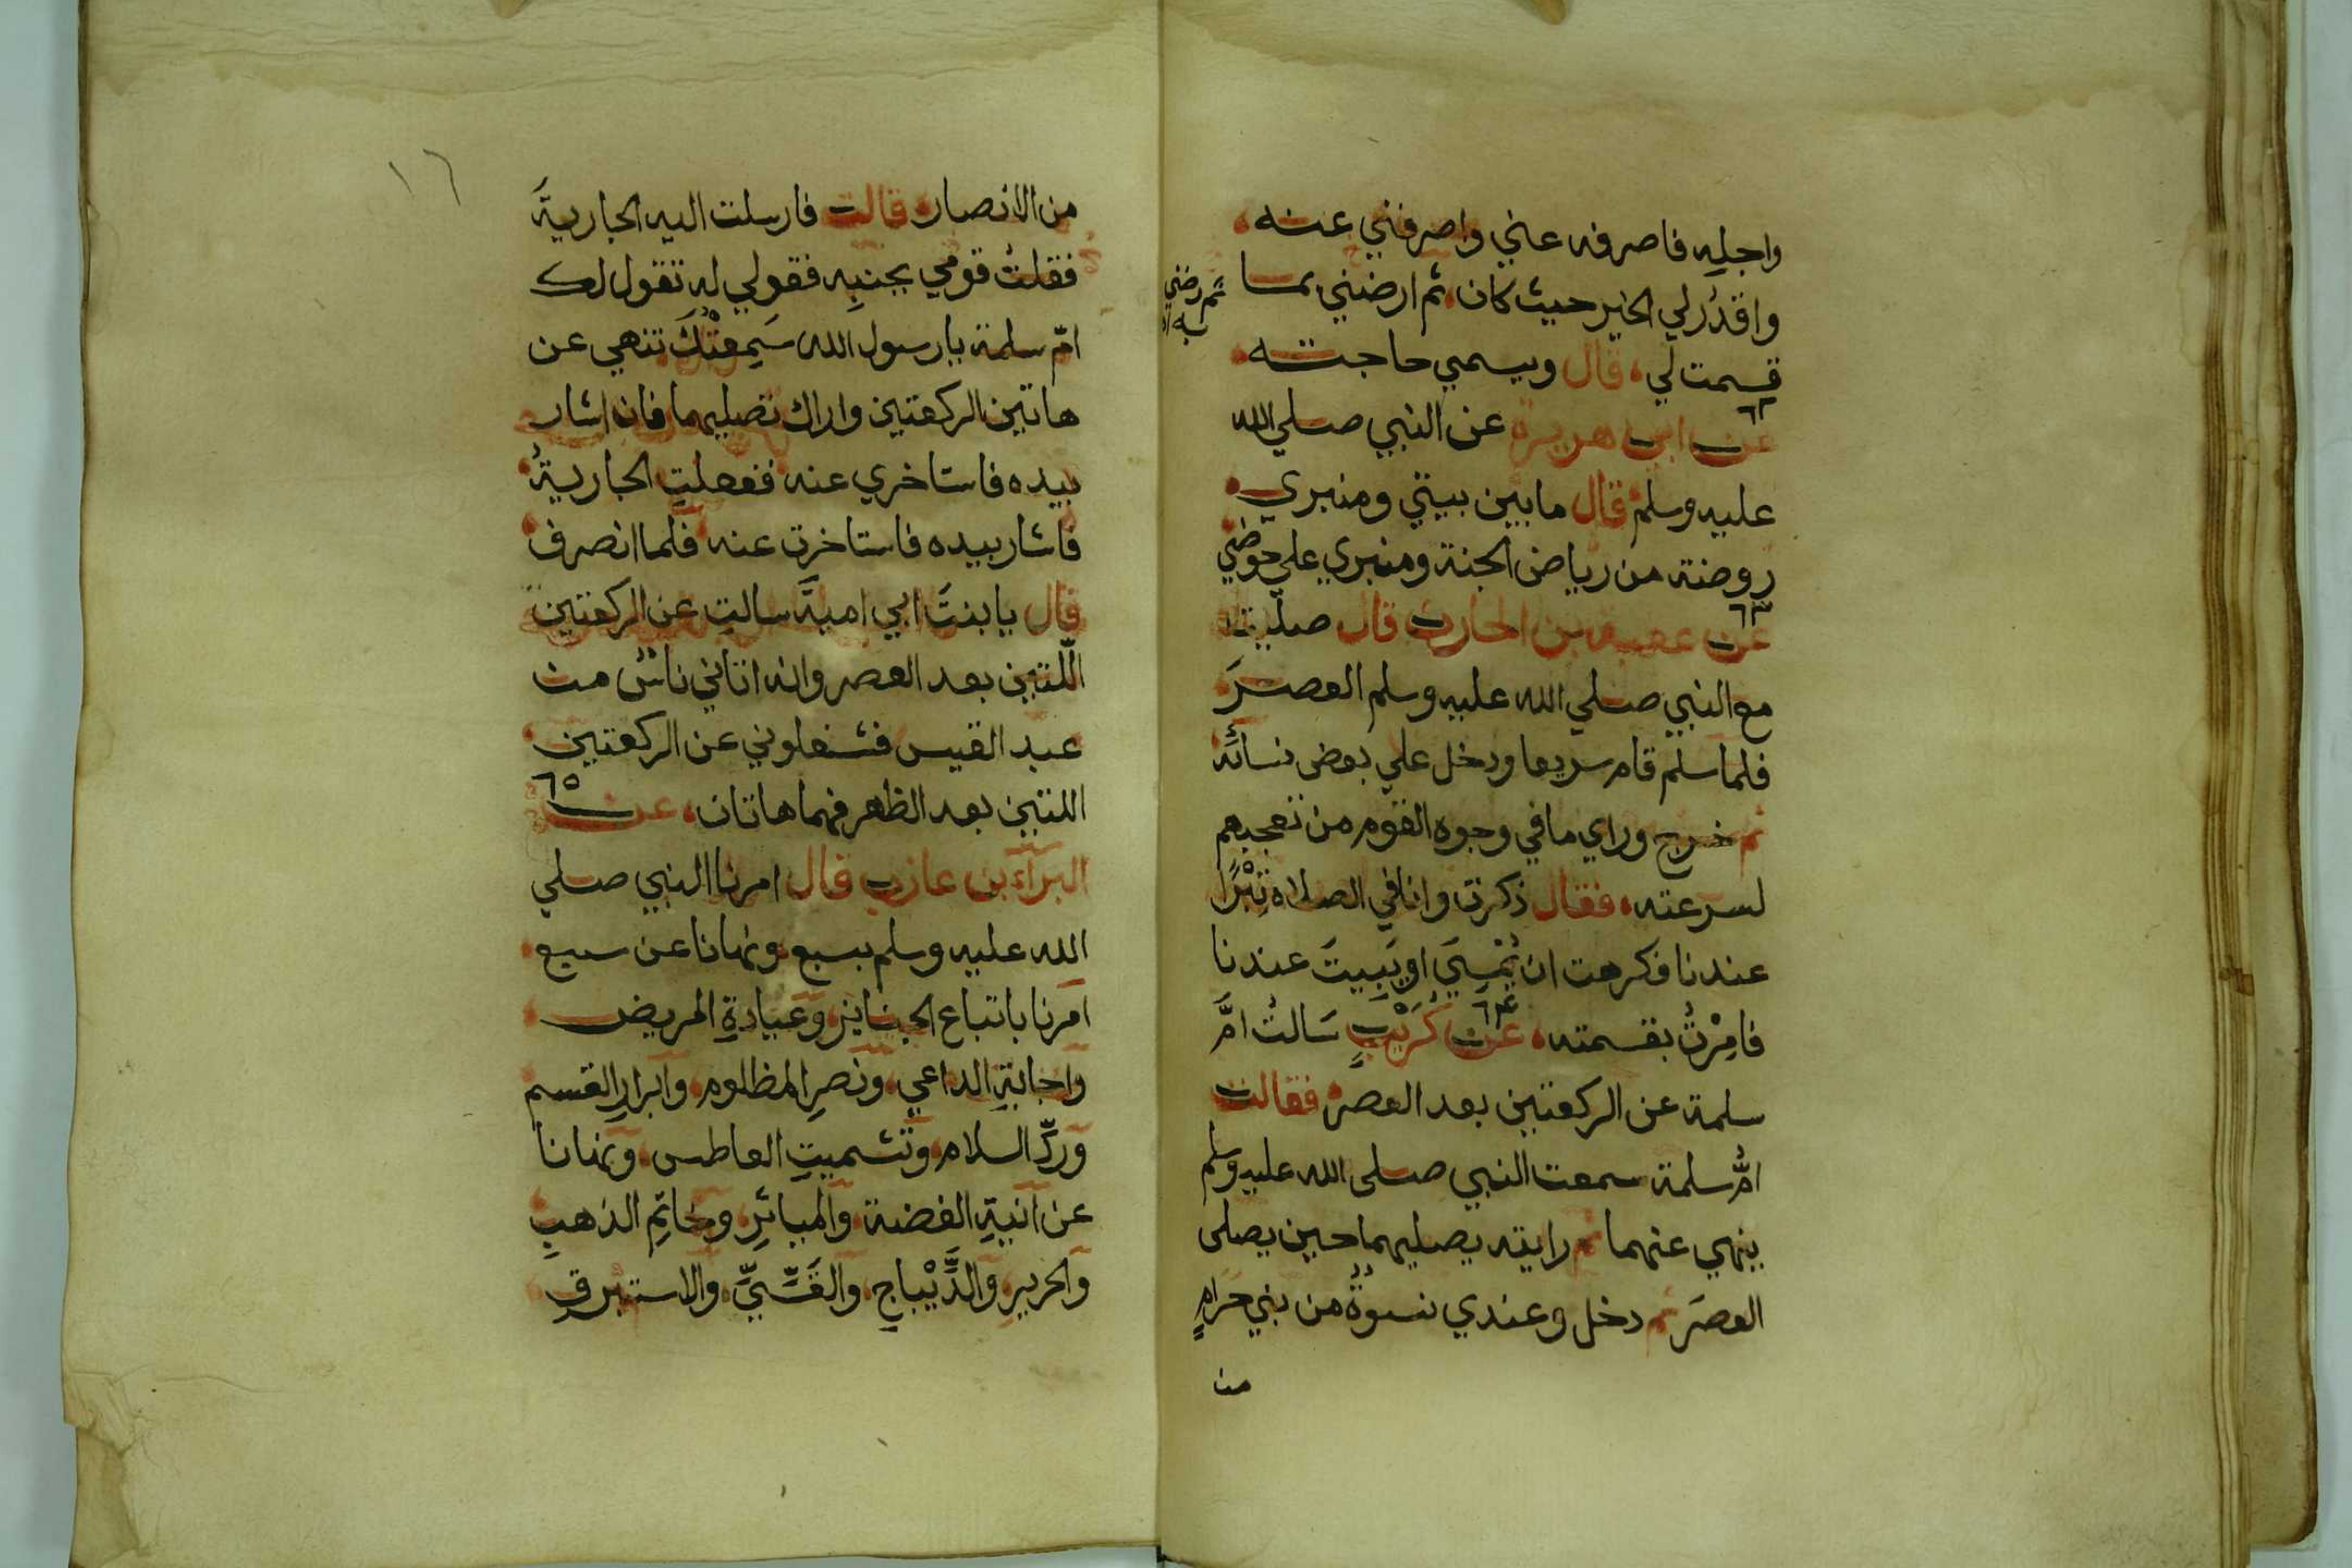 واجلِه فاصرفه عني واصرفني عنه
واقدُر لي الخير حيث كان ثم ارضني بما
ثم رضني به
قسمت لي، قال ويسمي حاجته
٦٢
عن ابي هريرة عن النبي صلي الله
عليه وسلم قال ما بين بيتي ومنبري
روضة من رياض الجنة ومنبري علي حوضي
٦٣
عن عقبة بن الحارث قال صليت
مع النبي صلي الله عليه وسلم العصرَ
فلما سلم قام سريعا ودخل علي بعض نسائه
ثم خرج وراي ما في وجوه القوم من تعجبهم
لسرعته، فقال ذكرت وانا في الصلاه تِبْرًا
عندنا فكرهت ان يُمْسِيَ او يَبِيتَ عندنا
٦٤
فامِرْتُ بقسمته، عن كُرَيْبٍ سَالتُ امَّ
سلمة عن الركعتين بعد العصر فقالت
امُّ سلمة سمعت النبي صلى الله عليه وسلم
ينهي عنهما ثم رايته يصليهما حين يصلى
العصَر ثم دخل وعندي نسوةٌ من بني حَرامٍ
من
١٦
من الانصار، قالت فارسلت اليه الجاريةَ
فقلتُ قومي بجنبِه فقولي له تقول لك
امّ سلمة يا رسول الله سَمِعتْكَ تنهي عن
هاتين الركعتين واراك تصليهما فان اشار
بيده فاستاخري عنه ففعلتِ الجاريةُ
فاشار بيده فاستاخرت عنه فلما انصرف
قال يا بنتَ ابي اميةَ سالتِ عن الركعتين
اللّتين بعد العصر وانه اتاني ناسٌ من
عبد القيس فشغلوني عن الركعتين
٦٥
اللتين بعد الظهر فهما هاتان، عن
البَراء بن عازب قال امرنا النبي صلي
الله عليه وسلم بسبع ونهانا عن سبع
امرنا باتباع الجنايز وعيادةِ المريض
واجابةِ الداعي ونصرِ المظلوم وابرارِ القسم
وردِّ السلام وتشميتِ العاطس، ونهانا
عن آنيةِ الفضة والمياثرِ وخاتِمِ الذهبِ
والحريرِ والدِّيْباجِ والقَسِّيِّ والاستبرقِ